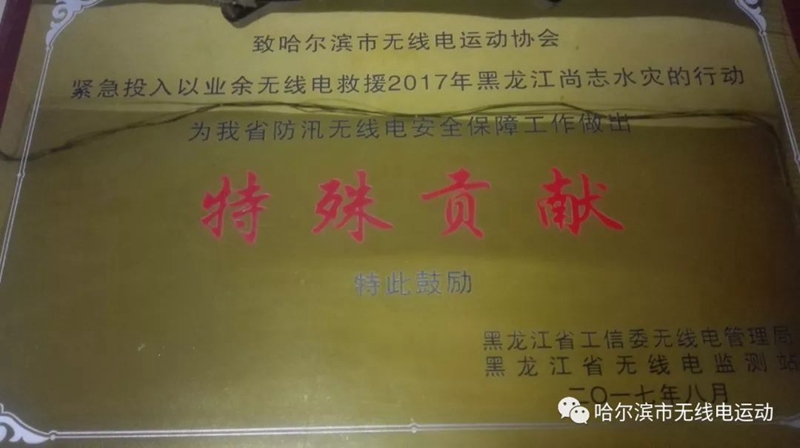 致哈尔滨市无线电运动协会
紧急投入以业余无线电救援2017年黑龙江尚志水灾的行动
为我省防汛无线电安全保障工作做出
特殊贡献
特此鼓励
黑龙江省工信委无线电管理局
黑龙江省无线电监测站
二〇一七年八月
哈尔滨市无线电运动